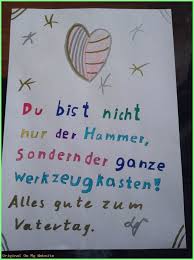 Du bist nicht
nur der Hammer,
Sondernder ganze
werkzeugkasten!
Alles gute zum
Vatertag.
Original On My Website